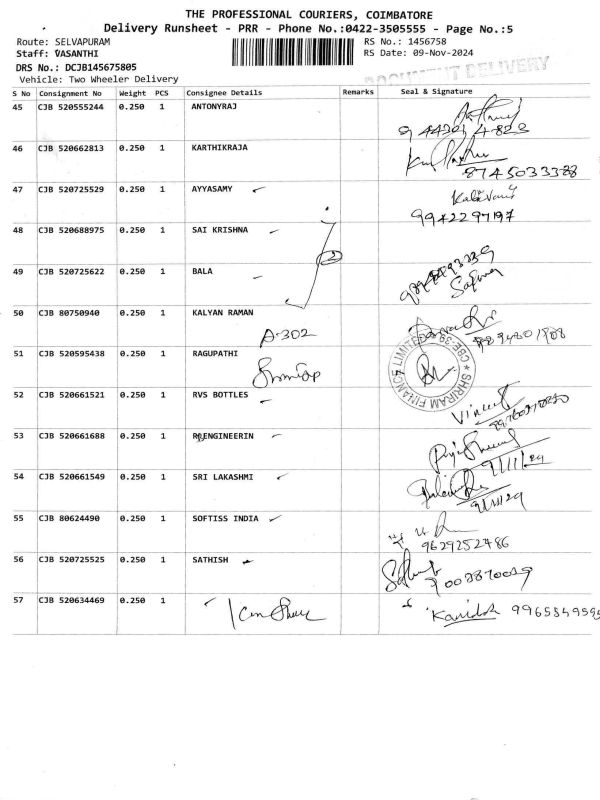 THE PROFESSIONAL COURIERS, COIMBATORE
Delivery Runsheet - PRR - Phone No.:0422-3505555 - Page No.:5
Route: SELVAPURAM RS No.: 1456758
Staff: VASANTHI RS Date: 09-Nov-2024
DRS No.: DCJB145675805
DOCUMENT DELIVERY
Vehicle: Two Wheeler Delivery
S No Consignment No Weight PCS Consignee Details Remarks Seal & Signature
45 CJB 520555244 0.250 1 ANTONYRAJ
46 CJB 520662813 0.250 1 KARTHIKRAJA
8745033328
47 CJB 520725529 0.250 1 AYYASAMY
9942297197
48 CJB 520688975 0.250 1 SAI KRISHNA
2
49 CJB 520725622 0.250 1 BALA
50 CJB 80750940 0.250 1 KALYAN RAMAN
A-302
51 CJB 520595438 0.250 1 RAGUPATHI
SHRIRAM FINANCE LIMITED CBE-39
52 CJB 520661521 0.250 1 RVS BOTTLES
Vincent
53 CJB 520661688 0.250 1
9/11/24
54 CJB 520661549 0.250 1 SRI LAKASHMI
9/11/24
55 CJB 80624490 0.250 1 SOFTISS INDIA
9629252486
56 CJB 520725525 0.250 1 SATHISH
57 CJB 520634469 0.250 1